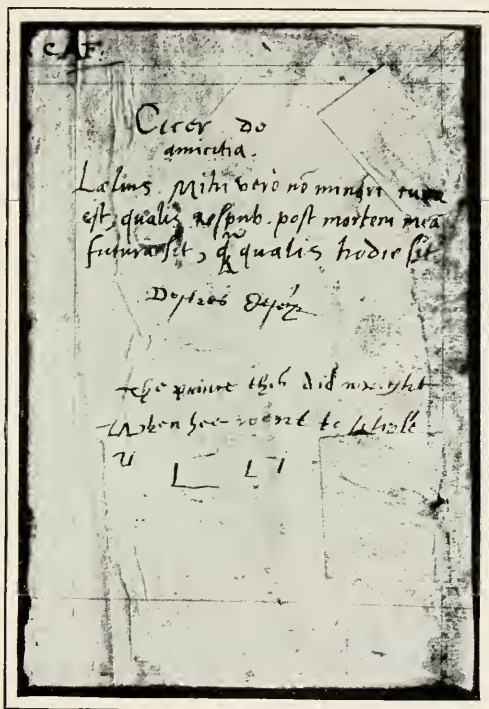 C.A.F.
Cicer de
amicitia.
Lælius. Mihi vero nō minori curæ
est, qualis respub. post mortem meā
futura sit, q̄ qualis hodie sit
the prince this did
When hee went to